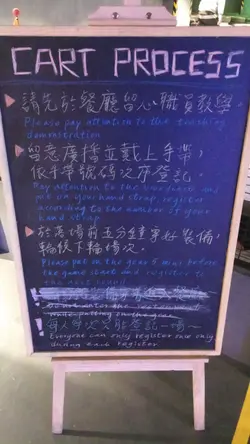 CART PROCESS
請先於餐廳留心職員教學
Please pay attention to the teaching
demonstration
留意廣播並戴上手帶,
依手帶號碼次序登記。
Pay attention to the broadcast and put
on your hand strap, register
according to the number of your
hand strap
於 場前五分鐘穿好裝備,
輪候下輪場次。
Please put on the gear 5 min before
the game start and register to
the next round
每人每次只能登記一場~
Everyone can only register one only
during each register